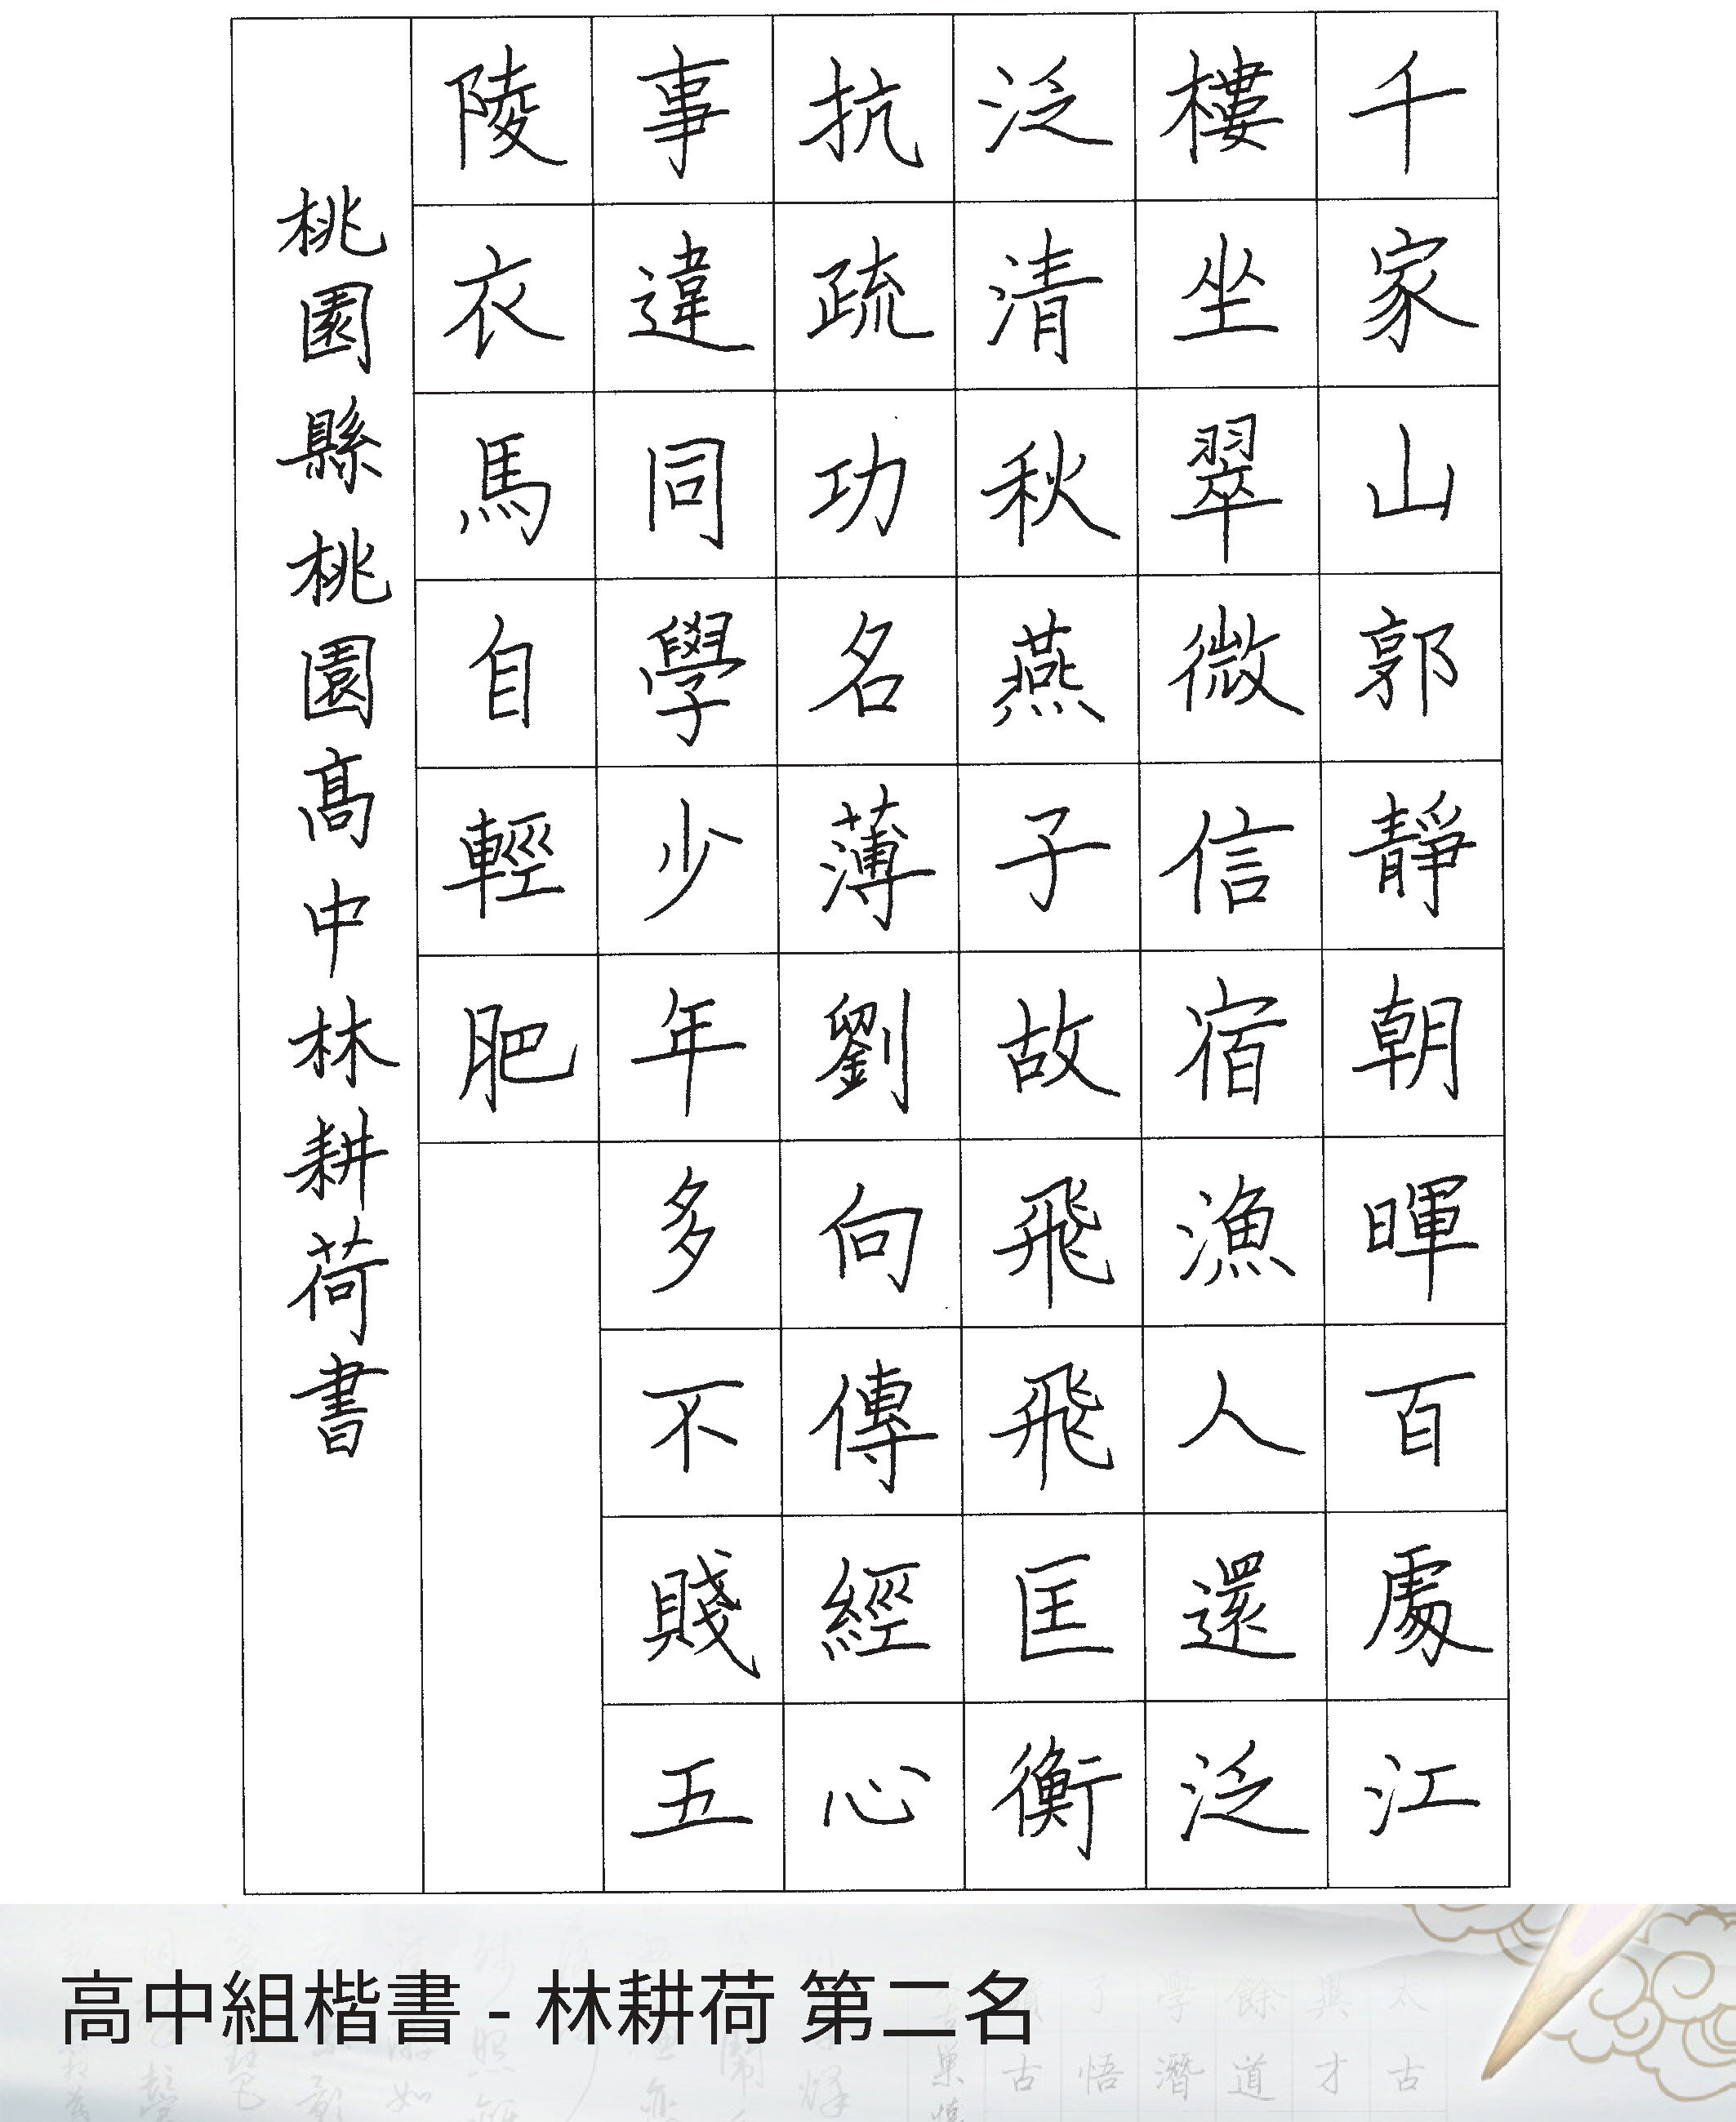 千家山郭靜朝暉百處江
樓坐翠微信宿漁人還泛
泛清秋燕子故飛飛匡衡
抗疏功名薄劉向傳經心
事違同學少年多不賤五
陵衣馬自輕肥
桃園縣桃園高中林耕荷書
高中組楷書 - 林耕荷 第二名